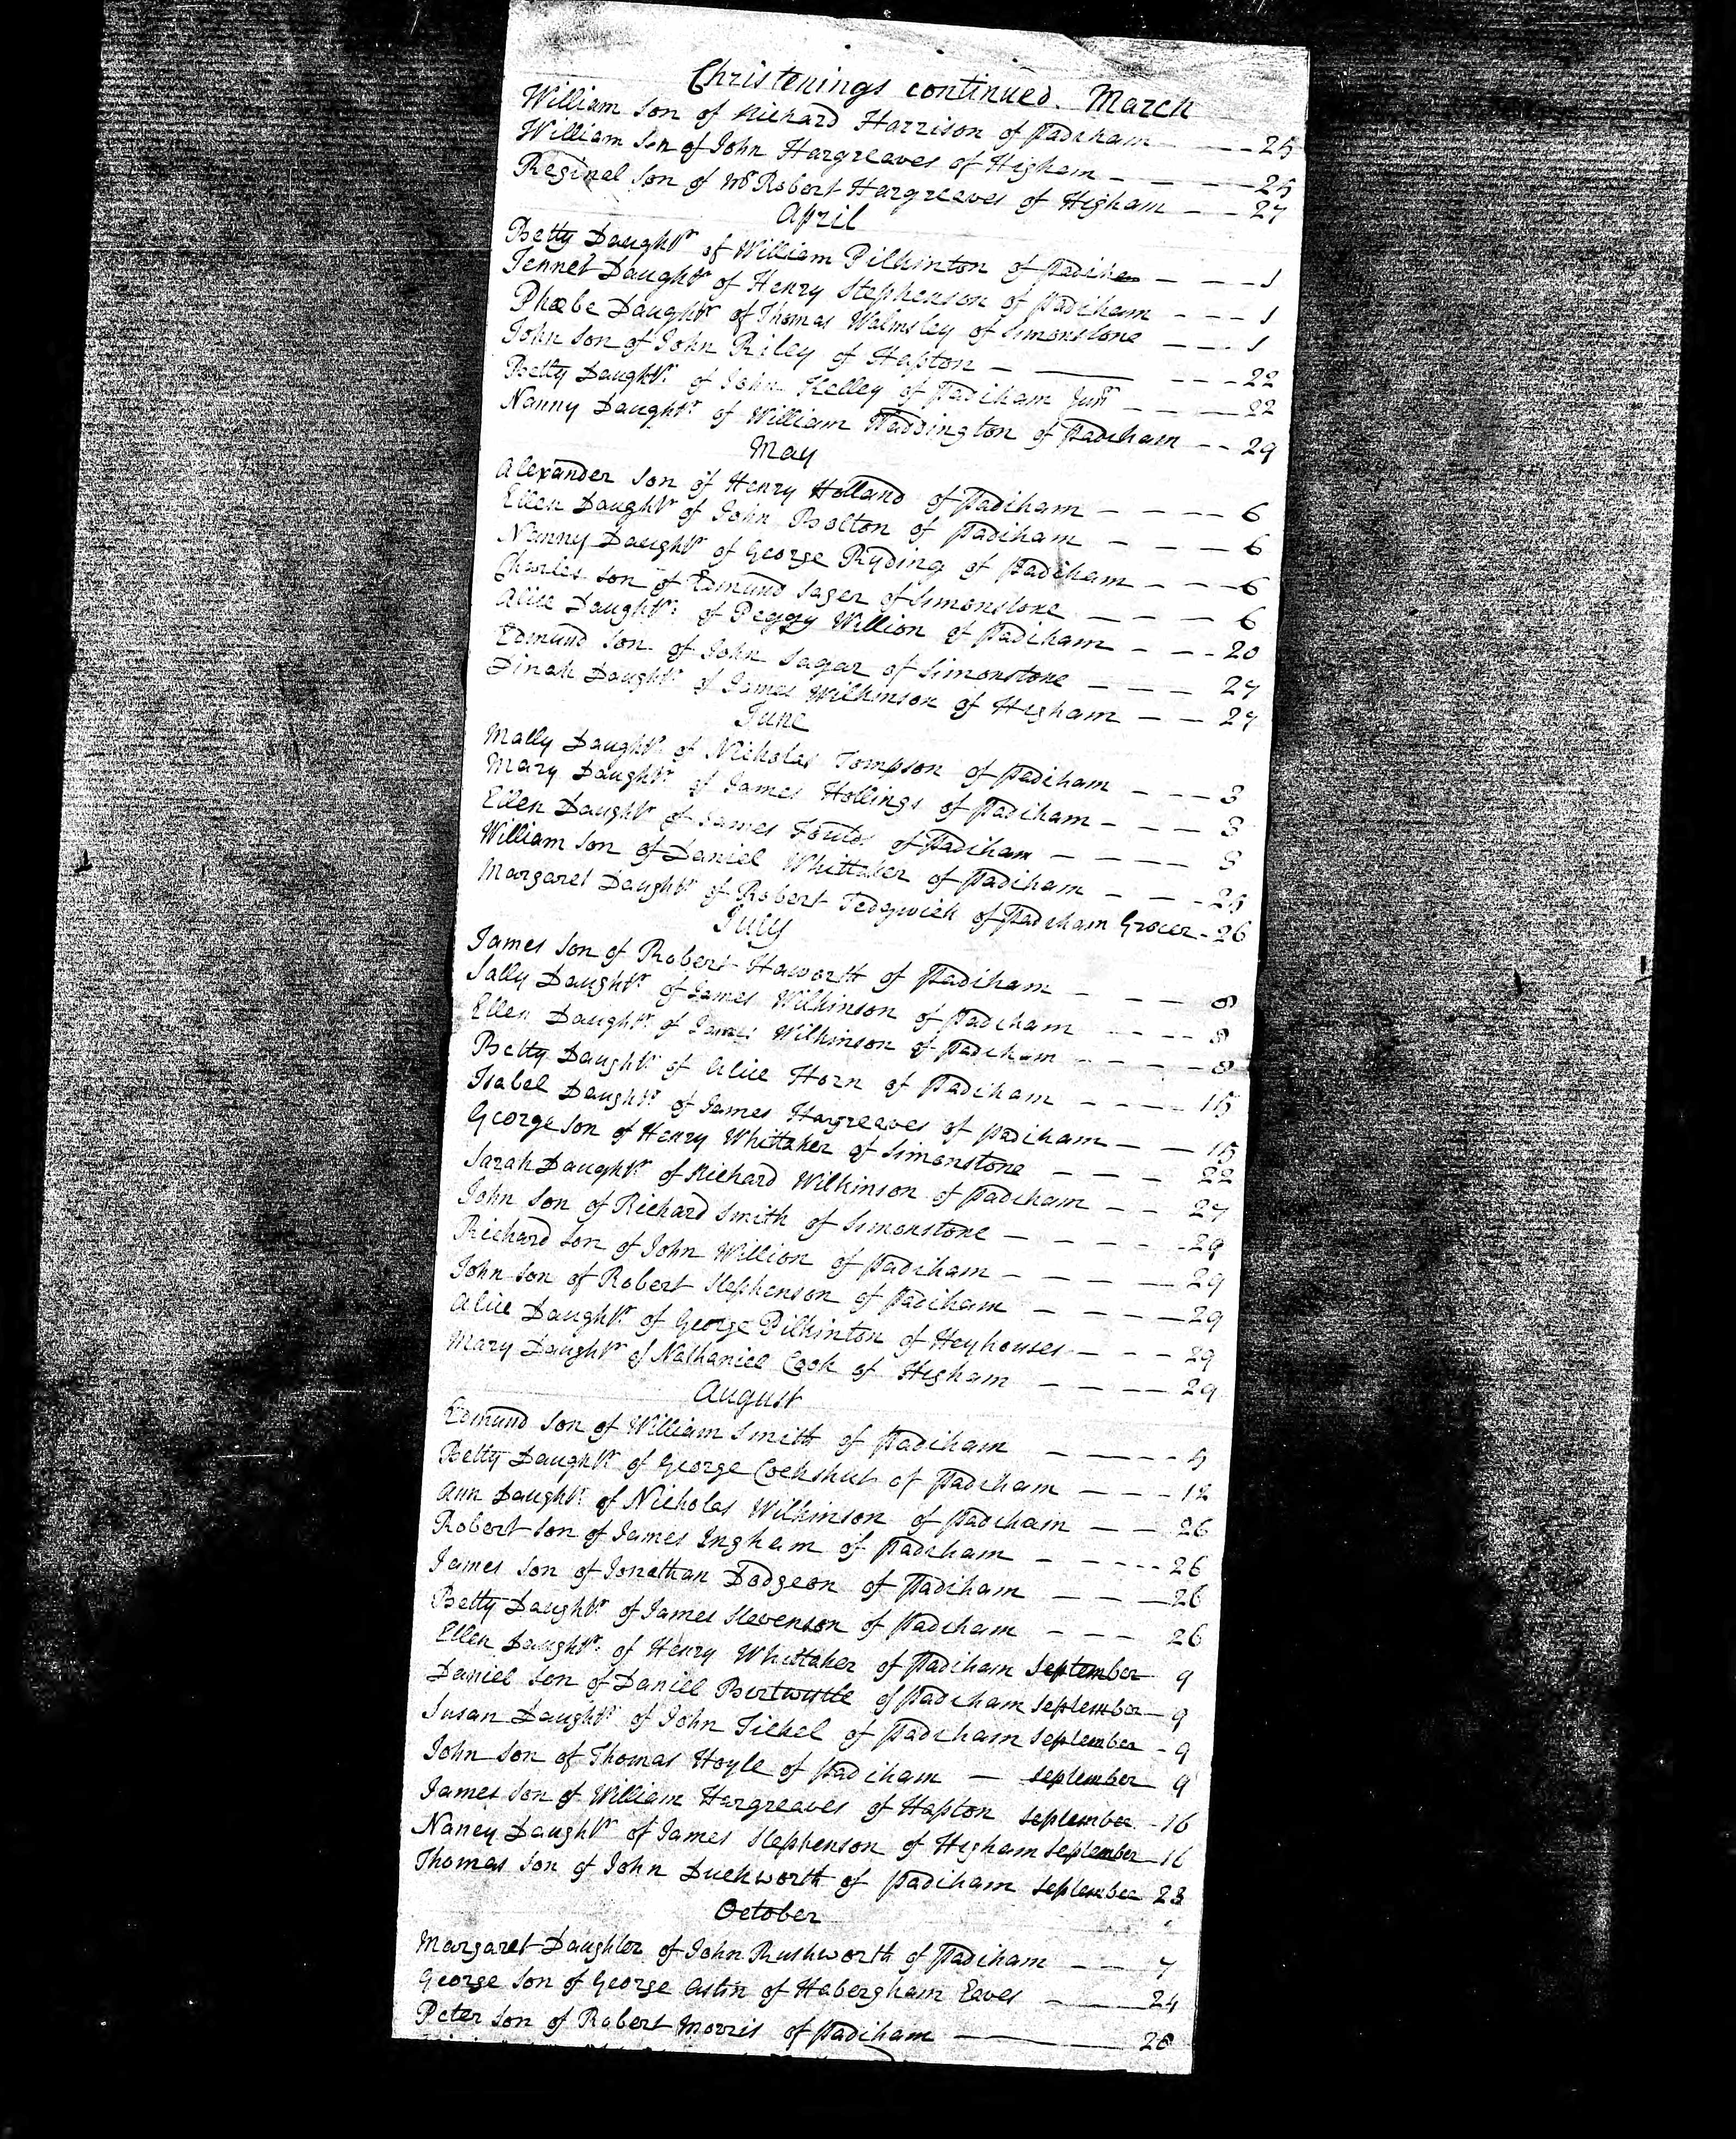 Christenings continued. March
William Son of Richard Harrison of Padiham 25
William Son of John Hargreaves of Higham 25
Reginel Son of Mr Robert Hargreaves of Higham 27
April
Betty Daughtr of William Pilkinton of Padiham 1
Jennet Daughtr of Henry Stephenson of Padiham 1
Phœbe Daughtr of Thomas Walmsley of Simonstone 1
John Son of John Riley of Hapton 22
Betty Daughtr of John Kelley of Padiham Junr 22
Nanny Daughtr of William Waddington of Padiham 29
May
Alexander Son of Henry Holland of Padiham 6
Ellen Daughtr of John Bolton of Padiham 6
Nanny Daughtr of George Ryding of Padiham 6
Charles Son of Edmund Sager of Simonstone 6
Alice Daughtr of Peggy Willion of Padiham 20
Edmund Son of John Sagar of Simonstone 27
Dinah Daughtr of James Wilkinson of Higham 27
June
Mally Daughtr of Nicholas Tompson of Padiham 3
Mary Daughtr of James Hollings of Padiham 3
Ellen Daughtr of James Foulds of Padiham 3
William Son of Daniel Whittaker of Padiham 25
Margaret Daughtr of Robert Tedgwick of Padiham Grocer 26
July
James Son of Robert Haworth of Padiham 8
Sally Daughtr of James Wilkinson of Padiham 8
Ellen Daughtr of James Wilkinson of Padiham 8
Betty Daughtr of Alice Horn of Padiham 15
Isabel Daughtr of James Hargreaves of Padiham 15
George Son of Henry Whittaker of Simonstone 22
Sarah Daughtr of Richard Wilkinson of Padiham 27
John Son of Richard Smith of Simonstone 29
Richard Son of John Willion of Padiham 29
John Son of Robert Stephenson of Padiham 29
Alice Daughtr of George Pilkinton of Heyhouses 29
Mary Daughtr of Nathaniel Cook of Higham 29
August
Edmund Son of William Smith of Padiham 5
Betty Daughtr of George Cockshut of Padiham 12
Ann Daughtr of Nicholas Wilkinson of Padiham 26
Robert Son of James Ingham of Padiham 26
James Son of Jonathan Dodgeon of Padiham 26
Betty Daughtr of James Stevenson of Padiham 26
Ellen Daughtr of Henry Whittaker of Padiham September 9
Daniel Son of Daniel Bertwistle of Padiham September 9
Susan Daughtr of John Tickel of Padiham September 9
John Son of Thomas Hoyle of Padiham September 9
James Son of William Hargreaves of Hapton September 16
Nancy Daughtr of James Stephenson of Higham September 16
Thomas Son of John Duckworth of Padiham September 23
October
Margaret Daughter of John Rushworth of Padiham 7
George Son of George Astin of Habergham Eaves 24
Peter Son of Robert Morris of Padiham 28